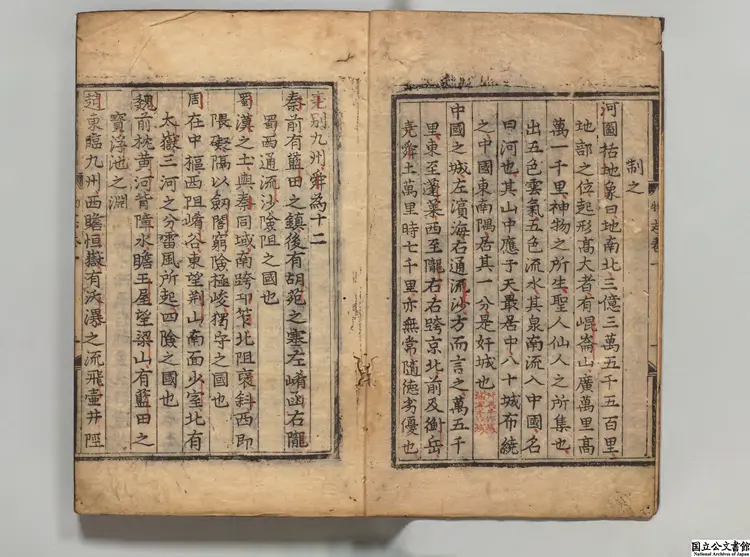 制之
河圖括地象曰地南北三億三萬五千五百里
地部之位起形高大者有崐崙山廣萬里高
萬一千里神物之所生聖人仙人之所集也
出五色雲氣五色流水其泉南流入中國名
曰河也其山中應于天最居中八十城布繞
之中國東南隅居其一分是奸城也
中國之城左濱海右通流沙方而言之萬五千
里東至蓬萊西至隴右右跨京北前及衡岳
堯舜土萬里時七千里亦無常隨德劣優也
堯別九州舜為十二
秦前有藍田之鎮後有胡苑之塞左崤函右隴
蜀西通流沙險阻之國也
蜀漢之土與秦同域南跨邛筰北阻褒斜西即
隈礙隔以劒閣窮險極峻獨守之國也
周在中樞西阻崤谷東望荆山南面少室北有
太嶽三河之分雷風所起四險之國也
魏前枕黃河背漳水瞻王屋望梁山有藍田之
寶浮池之淵
趙東臨九州西瞻恒嶽有沃瀑之流飛壷井陘
国立公文書館
National Archives of Japan